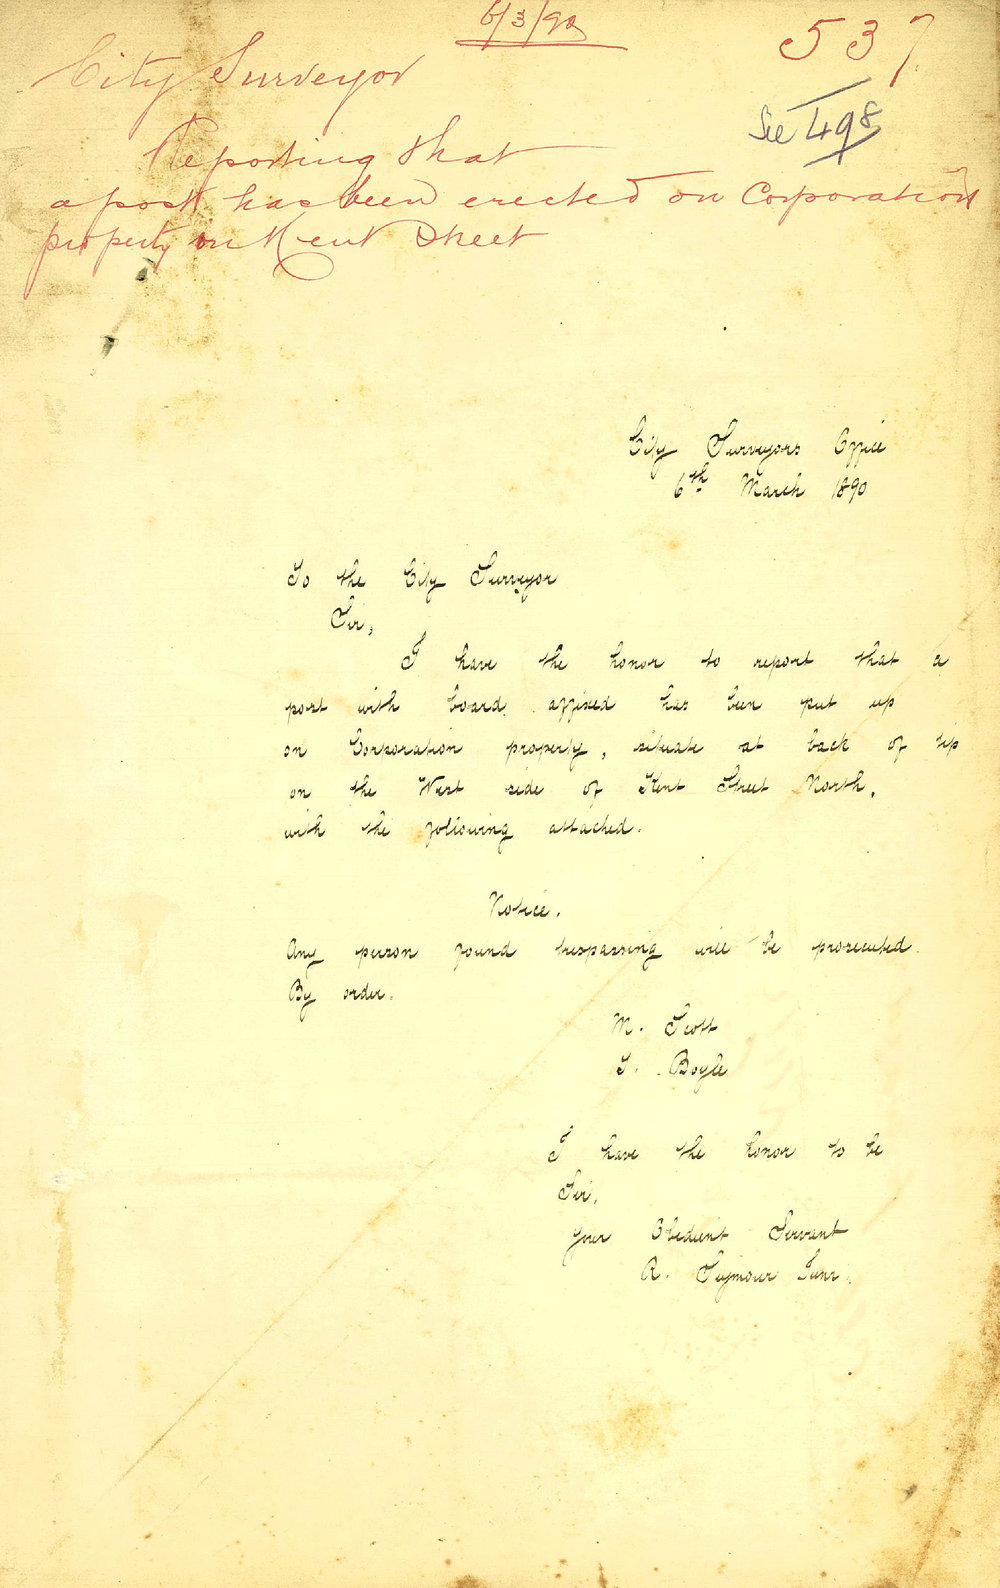 6/3/90
537
City Surveyor
See 498
Reporting that
a post has been erected on Corporation
property in Kent Street
City Surveyors Office
6th March 1890
To the City Surveyor
Sir,
I have the honor to report that a
post with board affixed has been put up
on Corporation property, situate at back of tip
on the West side of Kent Street North,
with the following attached.
Notice.
Any person found trespassing will be prosecuted.
By order.
M. Scott
T. Boyle
I have the honor to be
Sir,
Your Obedient Servant
R. Seymour Junr.